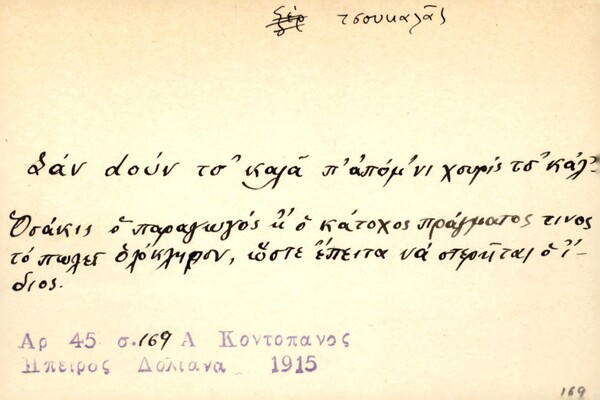 τσουκαλᾶς
Σὰν dοὺν τσ᾿καλᾶ π᾿ἀπόμ᾿νι χουρὶς τσ᾿κάλ᾿-
Ὁσάκις ὁ παραγωγός ἢ ὁ κάτοχος πράγματος τινος
τὸ πωλεῖ ὁλόκληρον, ὥστε ἔπειτα νὰ στερῆται ὁ ἴ-
διος.
Αρ 45 σ. 169 Α Κοντοπανος
Ηπειρος Δολιανα 1915
169